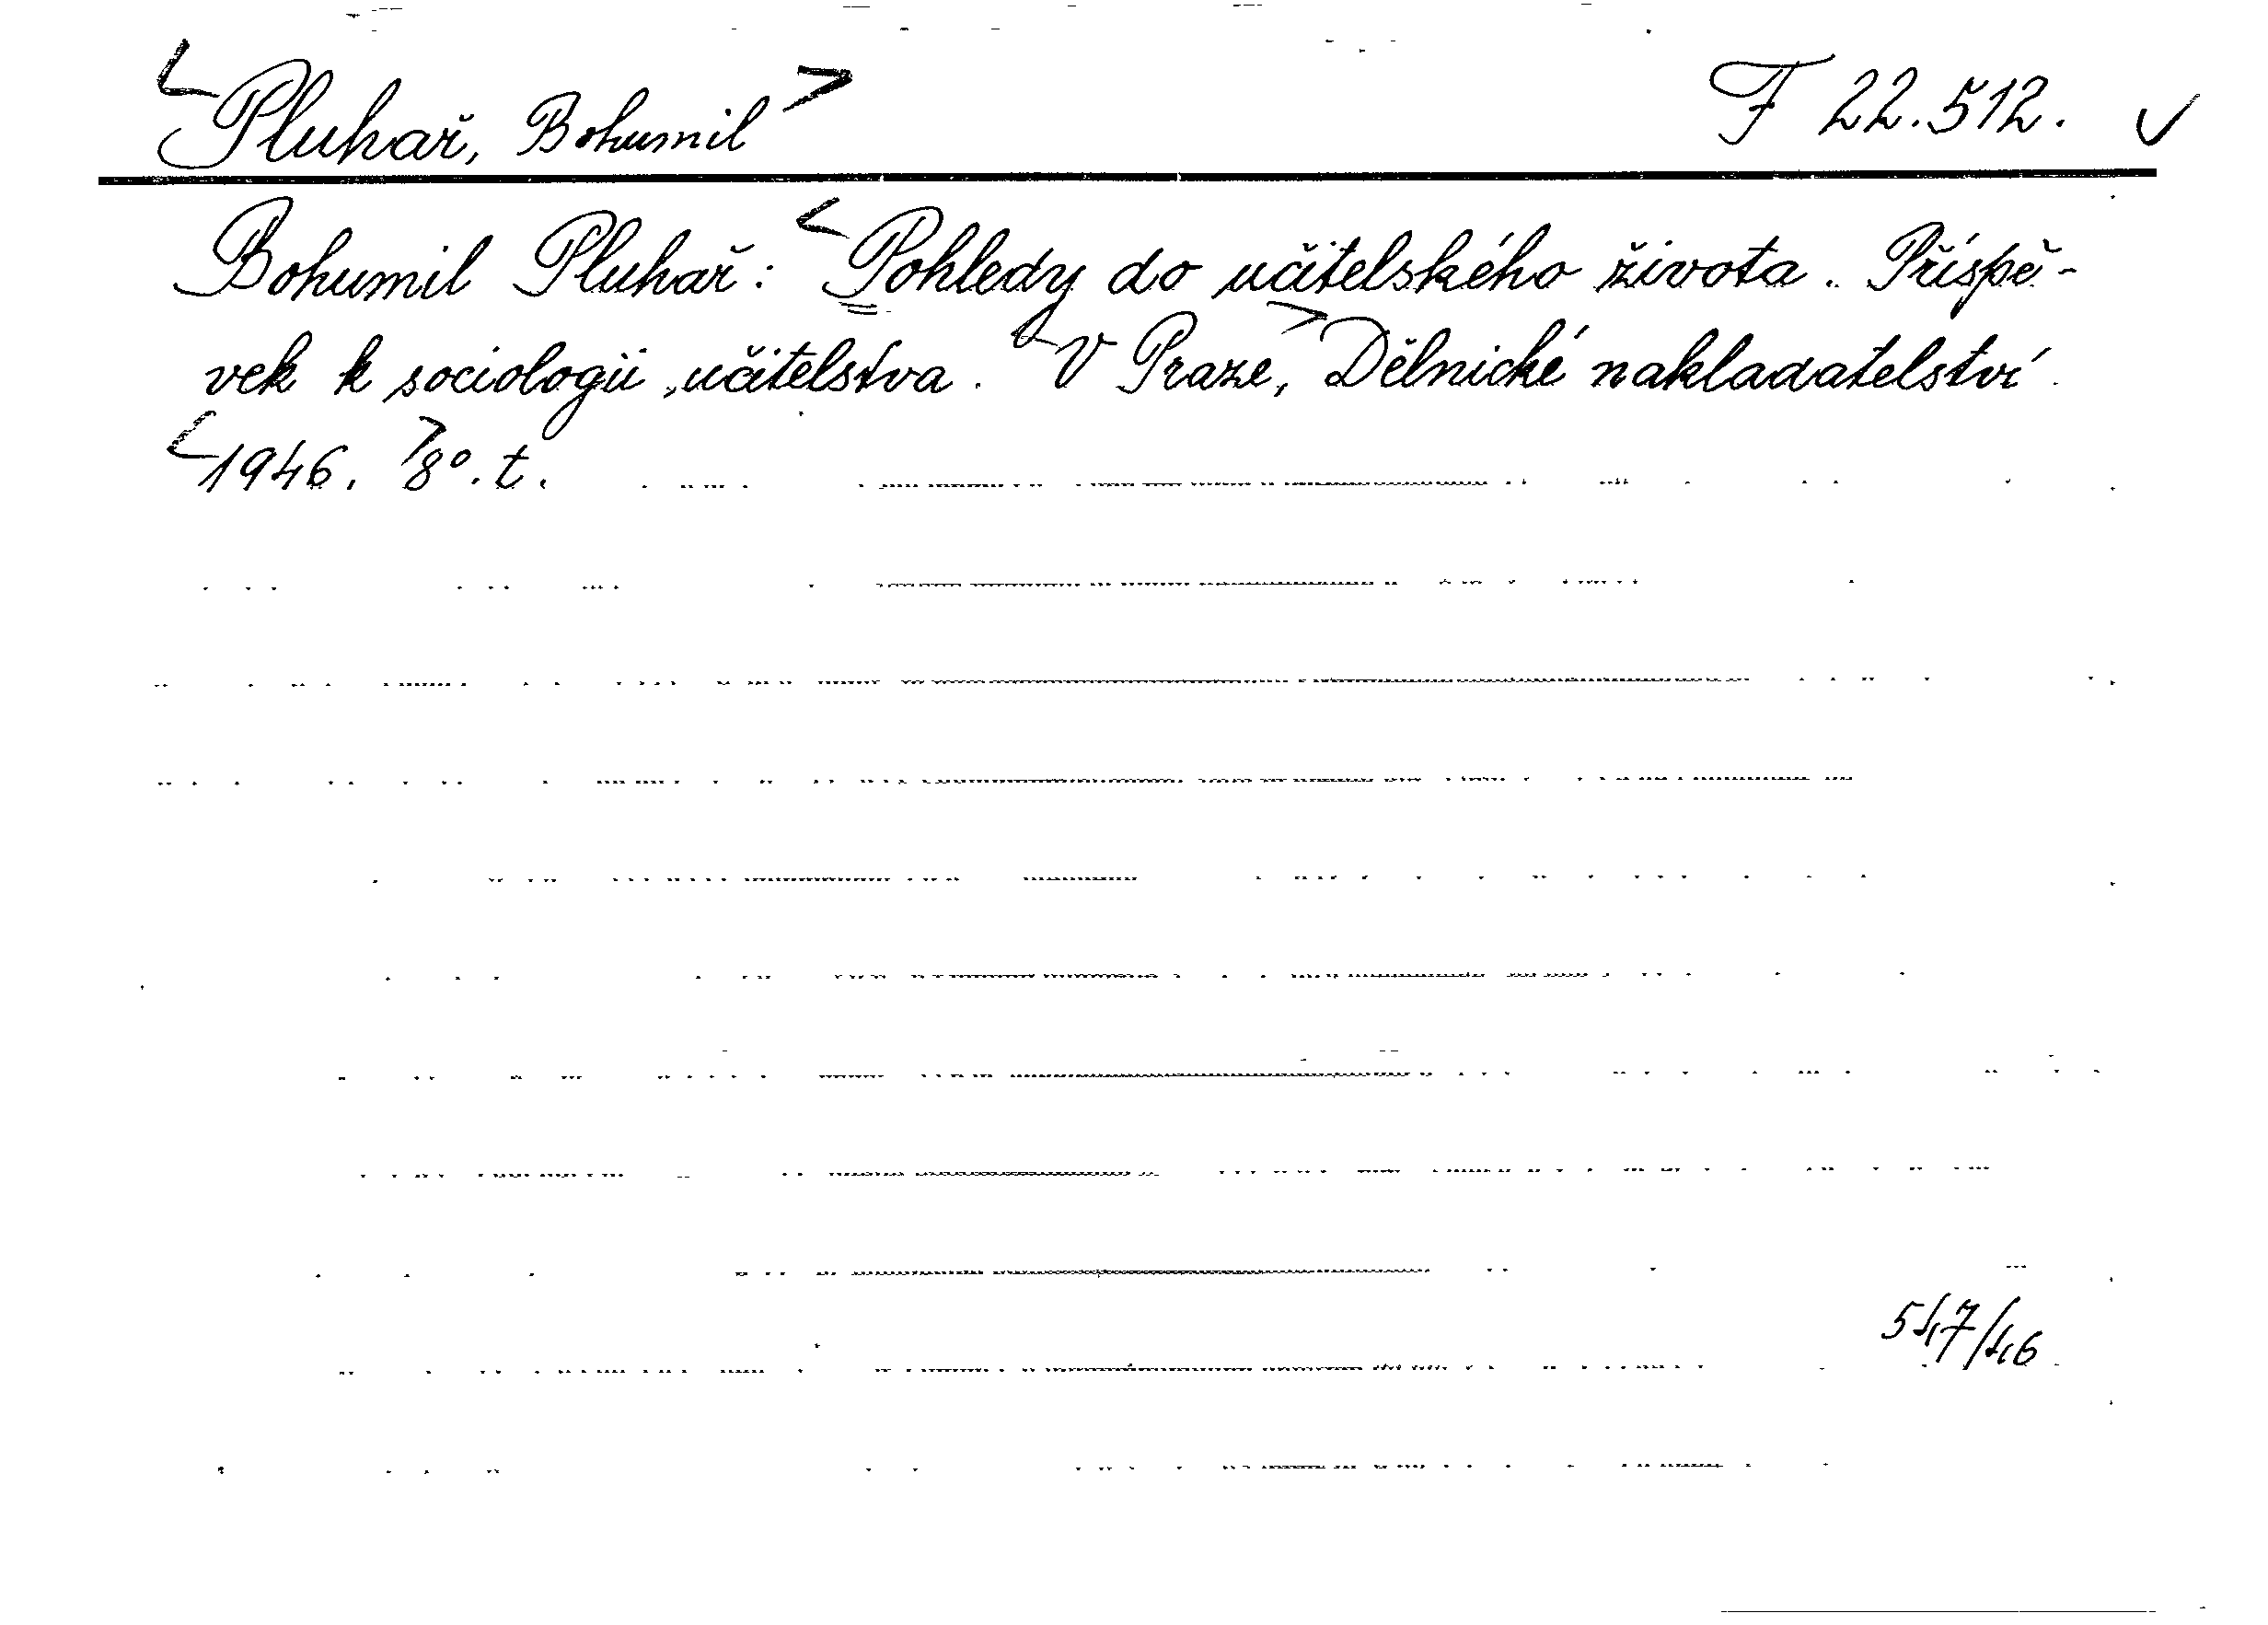 Pluhař, Bohumil F 22.512. ✓
Bohumil Pluhař: Pohledy do učitelského života. Příspě-
vek k sociologii učitelstva. V Praze, Dělnické nakladatelství
1946. 8°. t.
547/46